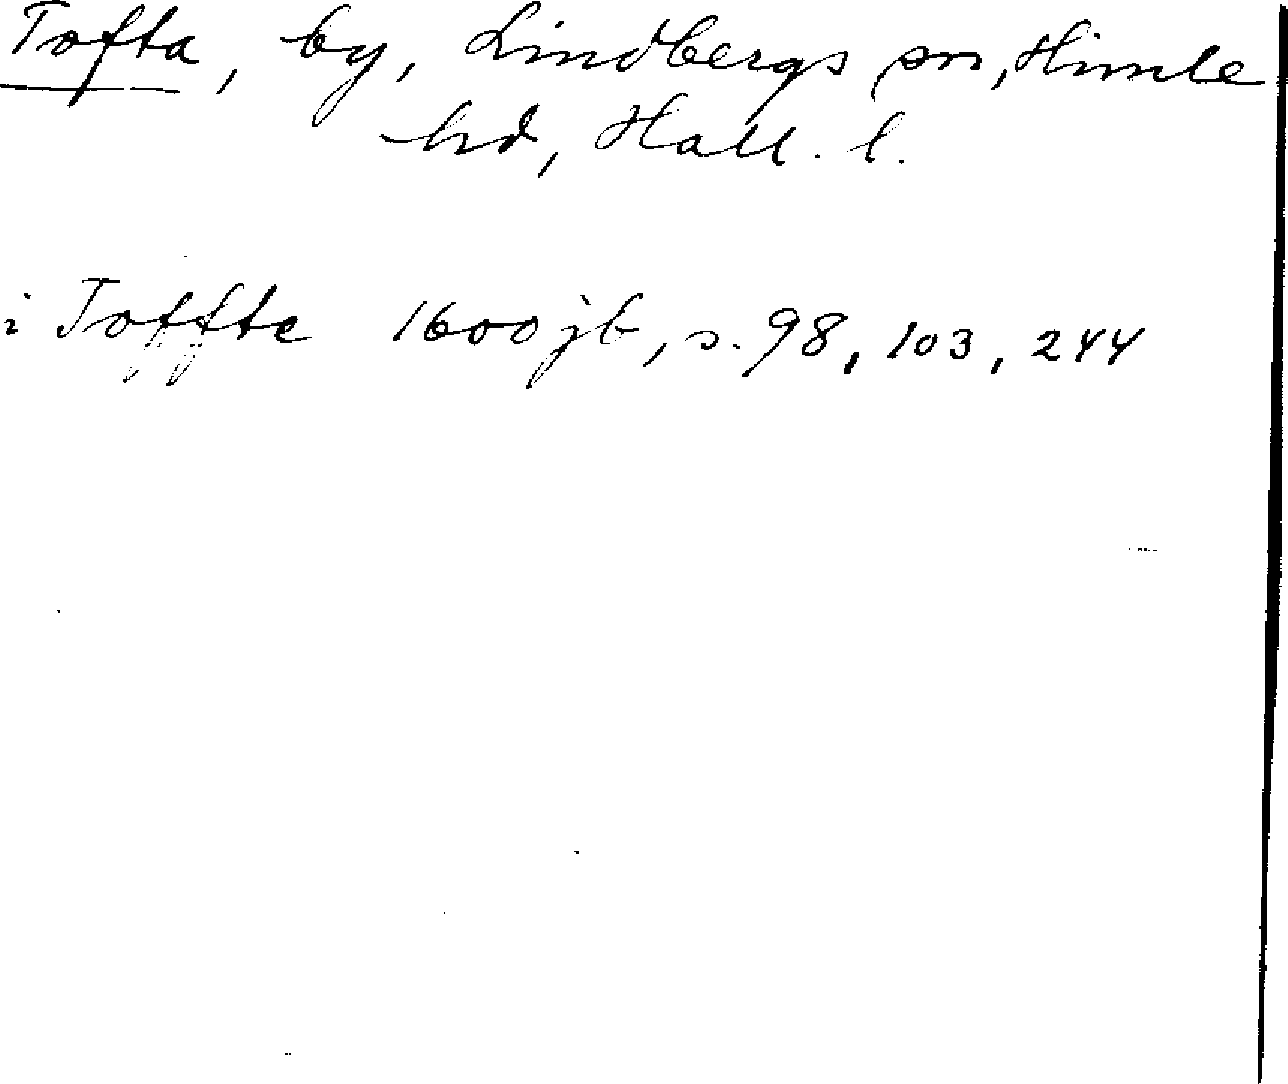 Tofta, by, Lindbergs sn, Himle
hd, Hall. l.
i Toffte 1600 jb, s. 98, 103, 244